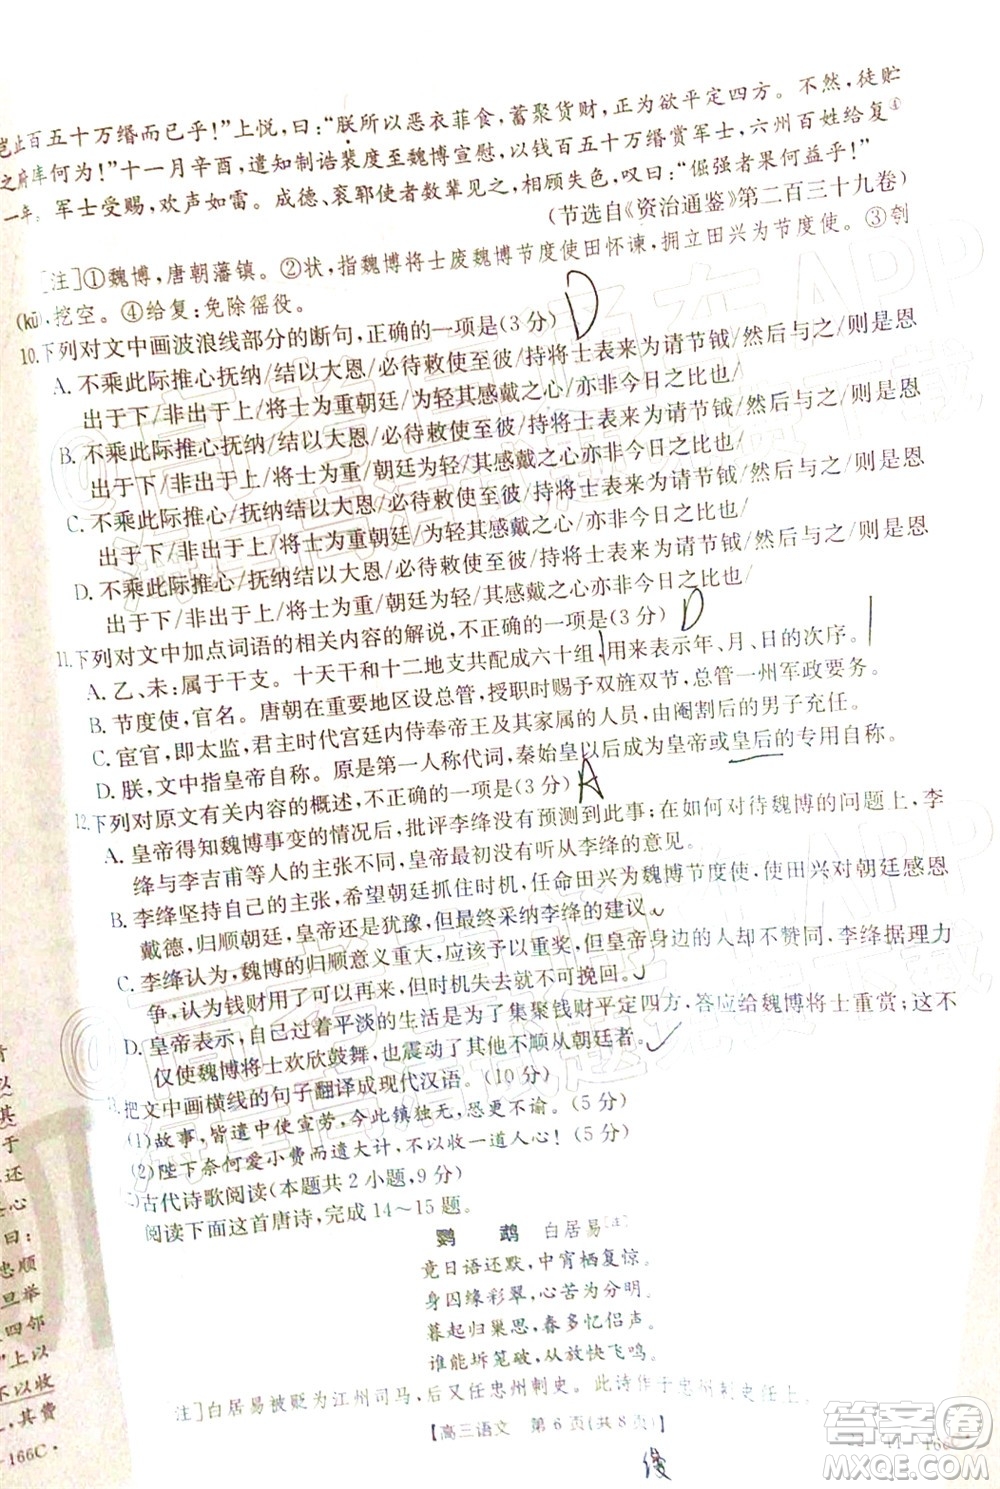 岂止百五十万缗而已乎!”上悦,曰:“朕所以恶衣菲食,蓄聚货财,正为欲平定四方。不然,徒贮
之府库何为!”十一月辛酉,遣知制诰裴度至魏博宣慰,以钱百五十万缗赏军士,六州百姓给复④
一年。军士受赐,欢声如雷。成德、兖郓使者数辈见之,相顾失色,叹曰:“倔强者果何益乎!”
(节选自《资治通鉴》第二百三十九卷)
[注]①魏博,唐朝藩镇。②状,指魏博将士废魏博节度使田怀谏,拥立田兴为节度使。③刳
(kū),挖空。④给复:免除徭役。
10.下列对文中画波浪线部分的断句,正确的一项是(3分) D
A. 不乘此际推心抚纳/结以大恩/必待敕使至彼/持将士表来为请节钺/然后与之/则是恩
出于下/非出于上/将士为重朝廷/为轻其感戴之心/亦非今日之比也/
B. 不乘此际推心抚纳/结以大恩/必待敕使至彼/持将士表来为请节钺/然后与之/则是恩
出于下/非出于上/将士为重/朝廷为轻/其感戴之心/亦非今日之比也/
C. 不乘此际推心/抚纳结以大恩/必待敕使至彼/持将士表来/为请节钺/然后与之/则是恩
出于下/非出于上/将士为重/朝廷为轻其感戴之心/亦非今日之比也/
D. 不乘此际推心/抚纳结以大恩/必待敕使至彼/持将士表来/为请节钺/然后与之/则是恩
出于下/非出于上/将士为重/朝廷为轻/其感戴之心/亦非今日之比也/
11.下列对文中加点词语的相关内容的解说,不正确的一项是(3分) D
A. 乙、未:属于干支。十天干和十二地支共配成六十组,用来表示年、月、日的次序。
B. 节度使,官名。唐朝在重要地区设总管,授职时赐予双旌双节,总管一州军政要务。
C. 宦官,即太监,君主时代宫廷内侍奉帝王及其家属的人员,由阉割后的男子充任。
D. 朕,文中指皇帝自称。原是第一人称代词,秦始皇以后成为皇帝或皇后的专用自称。
12.下列对原文有关内容的概述,不正确的一项是(3分) A
A. 皇帝得知魏博事变的情况后,批评李绛没有预测到此事;在如何对待魏博的问题上,李
绛与李吉甫等人的主张不同,皇帝最初没有听从李绛的意见。
B. 李绛坚持自己的主张,希望朝廷抓住时机,任命田兴为魏博节度使,使田兴对朝廷感恩
戴德,归顺朝廷,皇帝还是犹豫,但最终采纳李绛的建议。
C. 李绛认为,魏博的归顺意义重大,应该予以重奖,但皇帝身边的人却不赞同,李绛据理力
争,认为钱财用尽了还会再来,但时机失去就不可挽回。
D. 皇帝表示,自己过着平淡的生活,是为了集聚钱财平定四方,答应给魏博将士重赏;这不
仅使魏博将士欢欣鼓舞,也震动了其他不顺从朝廷者。
13.把文中画横线的句子翻译成现代汉语。(10分)
(1)故事,皆遣中使宣劳,今此镇独无,恐更不谕。(5分)
(2)陛下奈何爱小费而遗大计,不以收一道人心!(5分)
(二)古代诗歌阅读(本题共2小题,9分)
阅读下面这首唐诗,完成14~15题。
鹦鹉 白居易[注]
竟日语还默,中宵栖复惊。
身囚缘彩翠,心苦为分明。
暮起归巢思,春多忆侣声。
谁能坼笼破,从放快飞鸣。
[注]白居易被贬为江州司马,后又任忠州刺史。此诗作于忠州刺史任上。
【高三语文 第6页(共8页)】